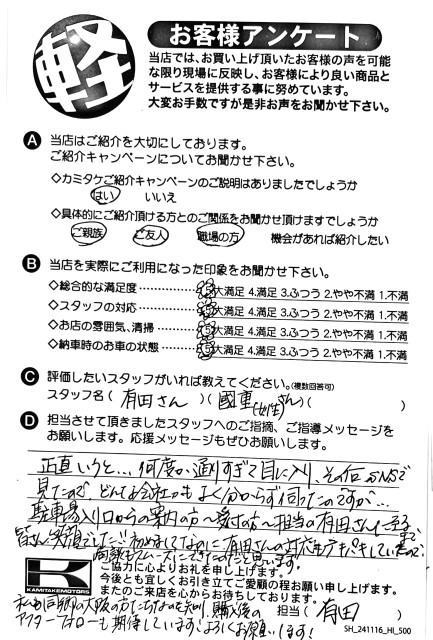 軽
お客様アンケート
当店では、お買い上げ頂いたお客様の声を可能
な限り現場に反映し、お客様により良い商品と
サービスを提供する事に努めています。
大変お手数ですが是非お声をお聞かせ下さい。
A 当店はご紹介を大切にしております。
ご紹介キャンペーンについてお聞かせ下さい。
◇カミタケご紹介キャンペーンのご説明はありましたでしょうか
はい いいえ
◇具体的にご紹介頂ける方とのご関係をお聞かせ頂けますでしょうか
ご親族 ご友人 職場の方 機会があれば紹介したい
B 当店を実際にご利用になった印象をお聞かせ下さい。
◇総合的な満足度 5.大満足 4.満足 3.ふつう 2.やや不満 1.不満
◇スタッフの対応 5.大満足 4.満足 3.ふつう 2.やや不満 1.不満
◇お店の雰囲気、清掃 5.大満足 4.満足 3.ふつう 2.やや不満 1.不満
◇納車時のお車の状態 5.大満足 4.満足 3.ふつう 2.やや不満 1.不満
C 評価したいスタッフがいれば教えてください。(複数回答可)
スタッフ名 ( 有田さん )( 國重さん (女性) )( )
D 担当させて頂きましたスタッフへのご指摘、ご指導メッセージを
お願いします。応援メッセージもぜひお願いします。
正直いうと…何度か通りすぎて目に入り、その后SNSで
見たので、どんな会社かもよく分からず伺ったのですが…
駐車場入り口からの案内の方〜受付の方〜担当の有田さんに至るまで
皆さん笑顔でした!! 初めましてなのに有田さんの対応もテキパキしていたので、
ご協力に心よりお礼を申し上げます。
今後とも宜しくお引き立てご愛顧の程お願い申し上げます。
またのご来店を心からお待ちしております。
K
KAMITAKEMOTORS
購入後の
アフターフォローも期待しています。よろしくお願いします!
担当 ( 有田 )
SH_241116_HI_500